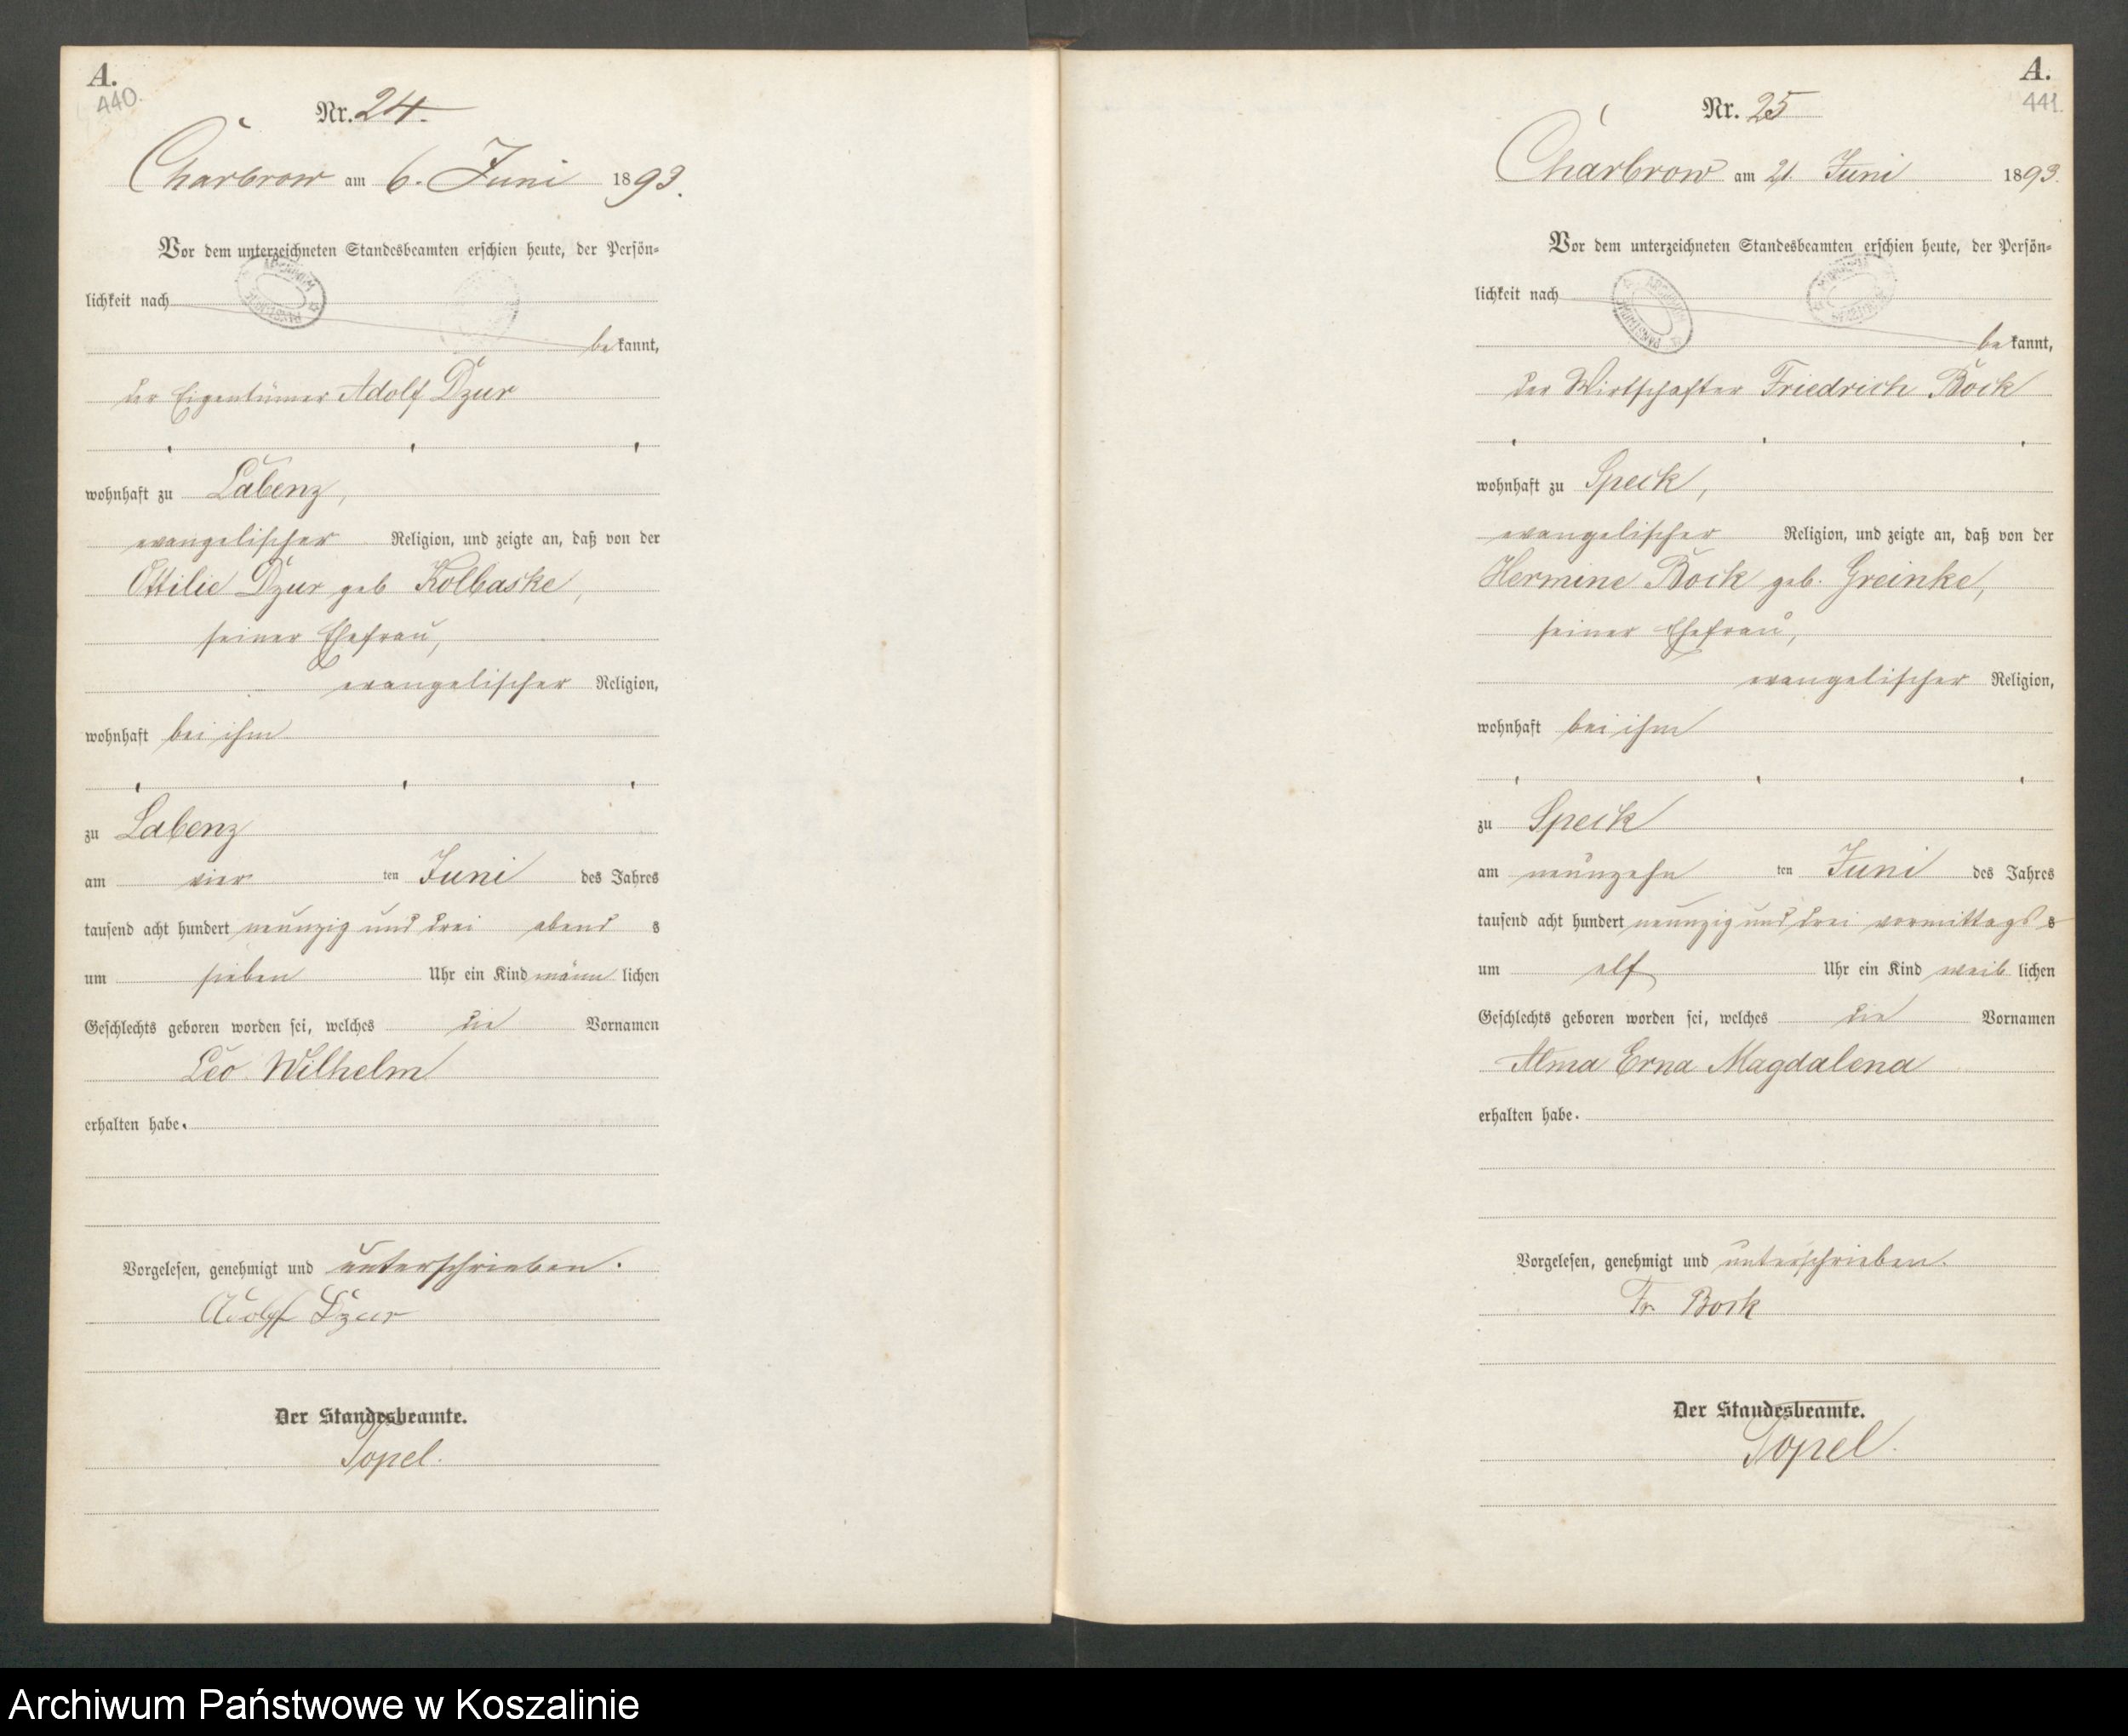 A.
440.
Nr. 24.
Charbrow am 6. Juni 1893.
Vor dem unterzeichneten Standesbeamten erschien heute, der Persön-
lichkeit nach
bekannt,
der Eigentümer Adolf Dzur
wohnhaft zu Labenz,
evangelischer Religion, und zeigte an, daß von der
Ottilie Dzur geb Kolbaske,
seiner Ehefrau,
evangelischer Religion,
wohnhaft bei ihm
zu Labenz
am vier ten Juni des Jahres
tausend acht hundert neunzig und drei abend s
um sieben Uhr ein Kind männ lichen
Geschlechts geboren worden sei, welches die Vornamen
Leo Wilhelm
erhalten habe.
Vorgelesen, genehmigt und unterschrieben.
Adolf Dzur
Der Standesbeamte.
Topel.
A.
441.
Nr. 25
Charbrow am 21. Juni 1893.
Vor dem unterzeichneten Standesbeamten erschien heute, der Persön-
lichkeit nach
bekannt,
der Wirtschafter Friedrich Bock
wohnhaft zu Speck,
evangelischer Religion, und zeigte an, daß von der
Hermine Bock geb. Greinke,
seiner Ehefrau,
evangelischer Religion,
wohnhaft bei ihm
zu Speck
am neunzehn ten Juni des Jahres
tausend acht hundert neunzig und drei vormittags s
um elf Uhr ein Kind weib lichen
Geschlechts geboren worden sei, welches die Vornamen
Alma Erna Magdalena
erhalten habe.
Vorgelesen, genehmigt und unterschrieben.
Fr. Bock
Der Standesbeamte.
Topel.
Archiwum Państwowe w Koszalinie